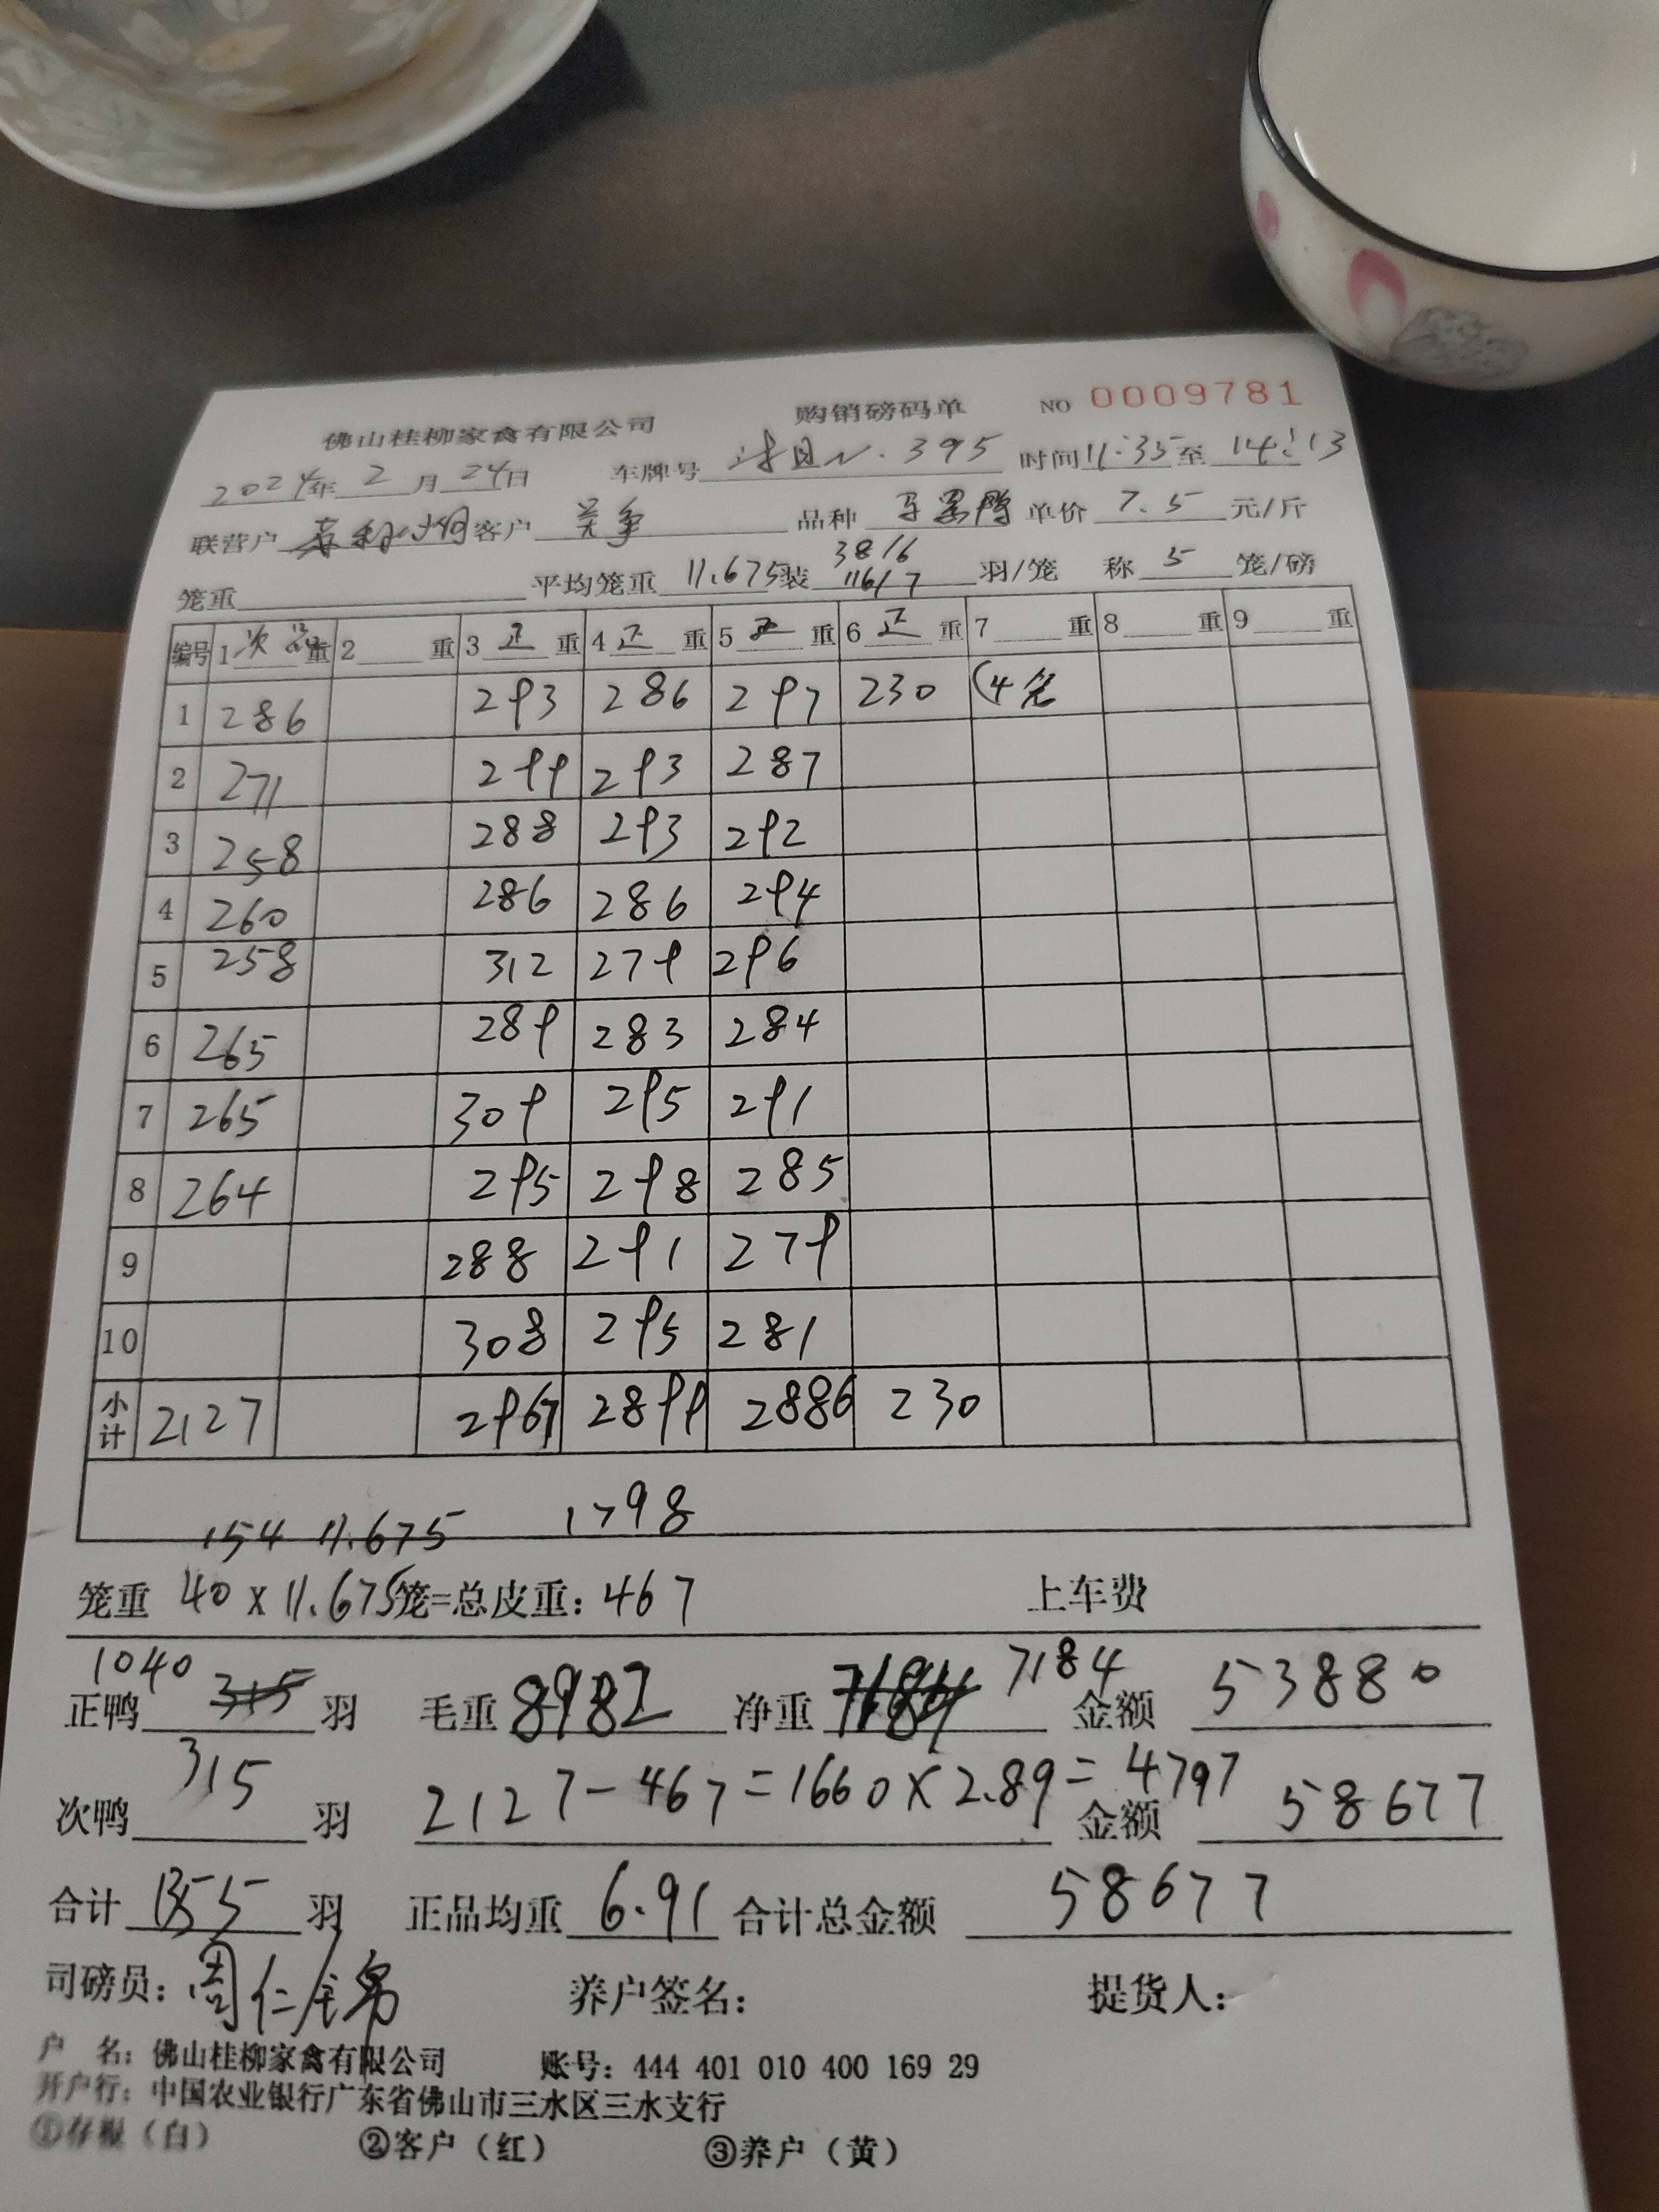 佛山桂柳家禽有限公司 购销磅码单 NO 0009781
2024年 2 月 24日 车牌号 N·395 时间11:35至 14:13
联营户 客户 品种 单价 7.5 元/斤
38/6
笼重 平均笼重 11.675装 116/7 羽/笼 称 5 笼/磅
编号 1次品重 2 重 3正重 4正重 5正重 6正重 7 重 8 重 9 重
1 286 293 286 297 230 (4笼
2 271 299 293 287
3 258 288 293 292
4 260 286 286 294
5 258 312 279 296
6 265 289 283 284
7 265 309 295 291
8 264 295 298 285
9 288 291 279
10 308 295 281
小计 2127 2967 2899 2886 230
154 11.675 1798
笼重 40×11.675笼=总皮重: 467 上车费
正鸭 1040 315 羽 毛重 8982 净重 7184 7184 金额 53880
次鸭 315 羽 2127-467=1660×2.89=4797 金额 58677
合计 1355 羽 正品均重 6.91 合计总金额 58677
司磅员: 周仁锦 养户签名: 提货人:
户 名: 佛山桂柳家禽有限公司 账号: 444 401 010 400 169 29
开户行: 中国农业银行广东省佛山市三水区三水支行
①存根（白） ②客户（红） ③养户（黄）